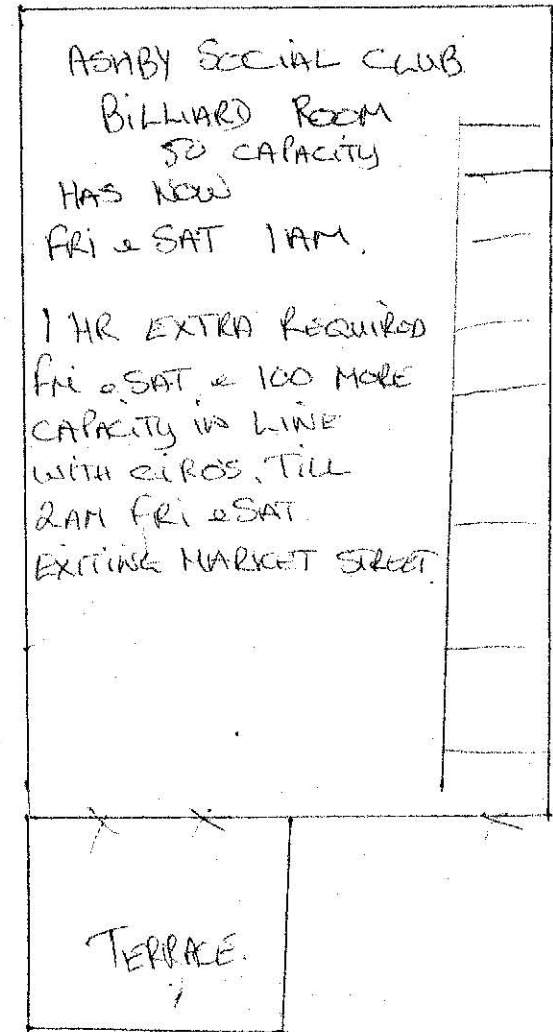 ASHBY SOCIAL CLUB
BILLIARD ROOM
50 CAPACITY
HAS NOW
FRI & SAT 1AM.
1 HR EXTRA REQUIRED
FRI & SAT & 100 MORE
CAPACITY IN LINE
WITH CIROS. TILL
2AM FRI & SAT
EXITING MARKET STREET
TERRACE.